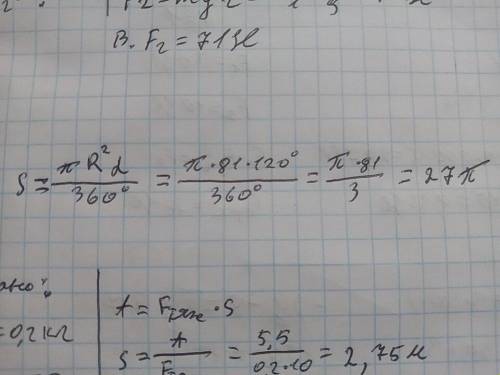 В. F₂ = 71 Н
S = πR²α/360° = π·81·120°/360° = π·81/3 = 27π
= 0,2 кг
A = Fтяж · S
S = A/Fт = 5,5/0,2·10 = 2,75 м